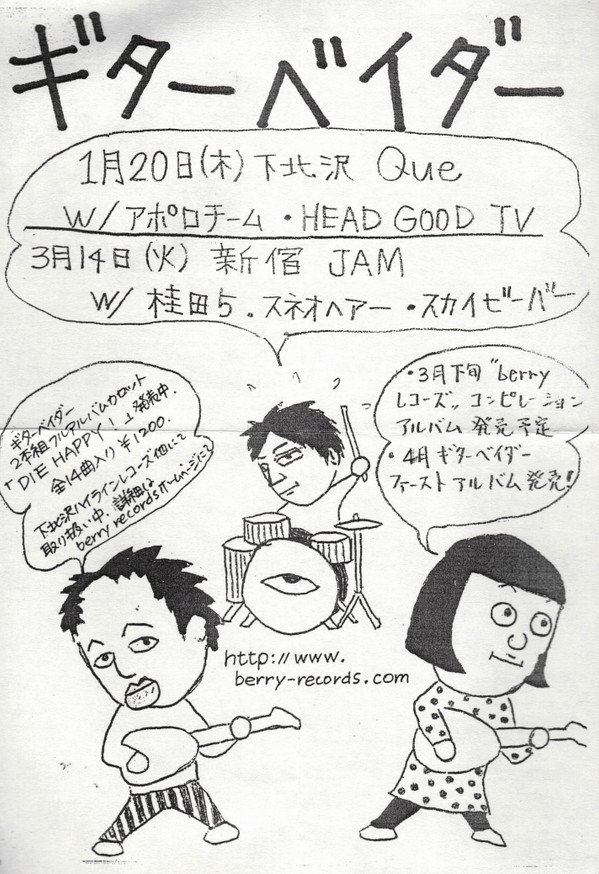 ギターベイダー
1月20日(木)下北沢 Que
W/アポロチーム・HEAD GOOD TV
3月14日(火) 新宿 JAM
W/ 桂田5.スネオヘアー・スカイビーバー
ギターベイダー
2本組フルアルバムカセット
「DIE HAPPY!」発売中.
全14曲入り ¥1200.
下北沢ハイラインレコーズ他にて
取り扱い中.詳細は
berry recordsホームページにて
・3月下旬 "berry
レコーズ〃コンピレーション
アルバム 発売予定
・4月 ギターベイダー
ファーストアルバム 発売!
http://www.
berry-records.com